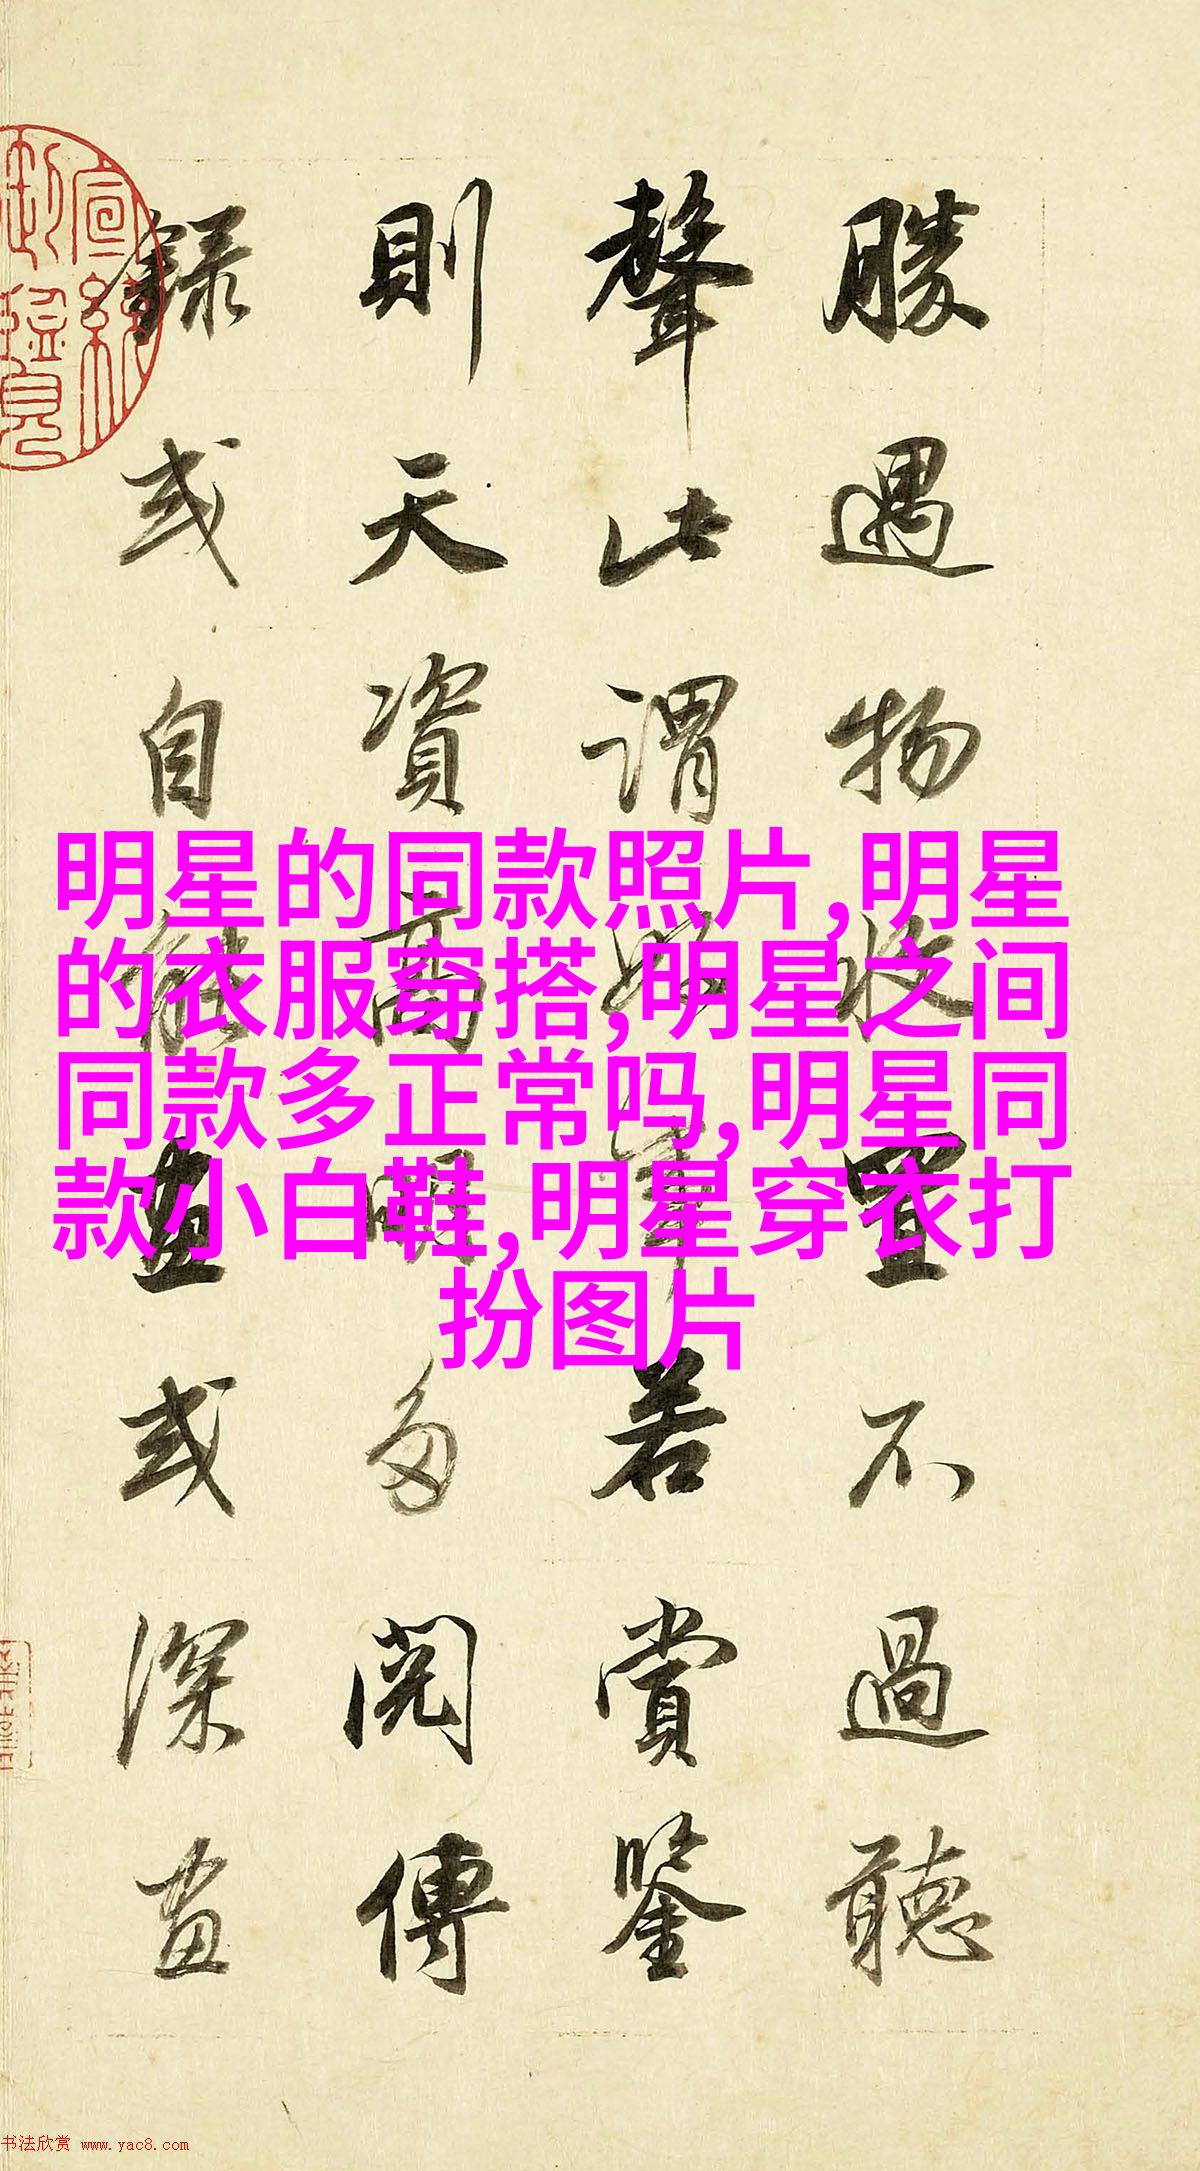 勝遇物收置不過聽
聲此謂好事若賞鑒
則天資高明多閱傳
錄或自能畫或深畫
宣統御覽
明星的同款照片,明星
的衣服穿搭,明星之间
同款多正常吗,明星同
款小白鞋,明星穿衣打
扮图片
书法欣赏 www.yac8.com